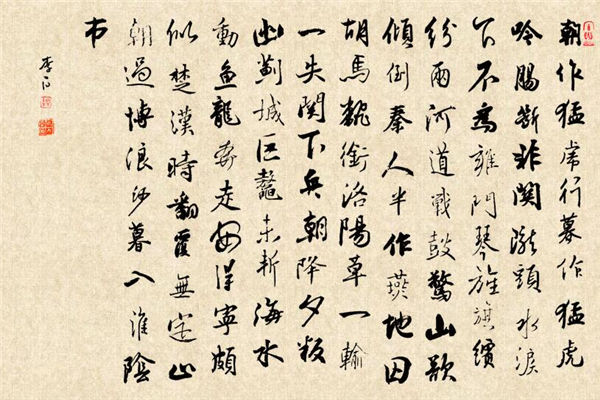 朝作猛虎行暮作猛虎
吟腸斷非關隴頭水淚
下不為雍門琴旌旗繽
紛兩河道戰鼓驚山欲
傾倒秦人半作燕地囚
胡馬翻銜洛陽草一輸
一失關下兵朝降夕叛
幽薊城巨鼇未斬海水
動魚龍奔走安得寧頗
似楚漢時翻覆無定止
朝過博浪沙暮入淮陰
市
李白